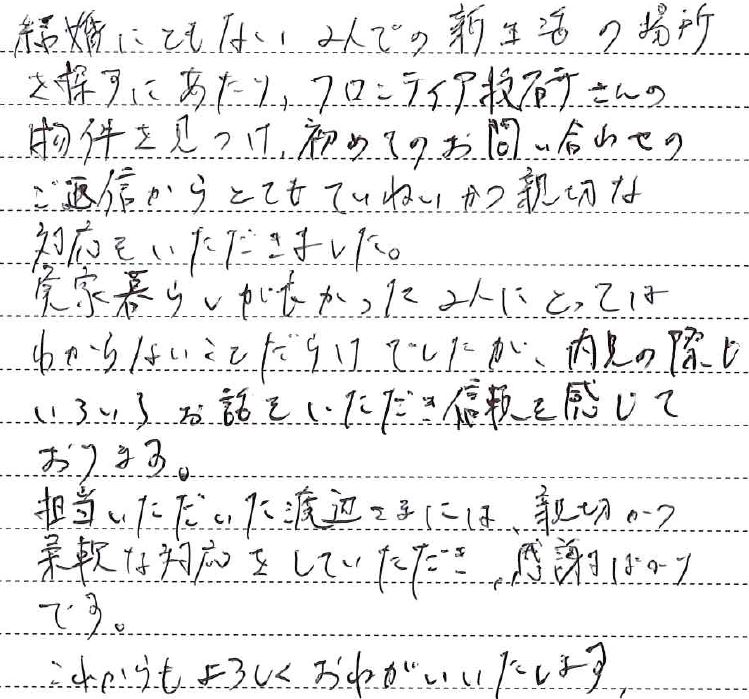 結婚にともない2人での新生活の場所
を探すにあたり、フロンティア技研さんの
物件を見つけ、初めてのお問い合わせの
ご返信からとてもていねいかつ親切な
対応をいただきました。
実家暮らしが長かった2人にとっては
わからないことだらけでしたが、内見の際も
いろいろお話をいただき信頼を感じて
おります。
担当いただいた渡辺さまには、親切かつ
柔軟な対応をしていただき、感謝ばかり
です。
これからもよろしくおねがいいたします。